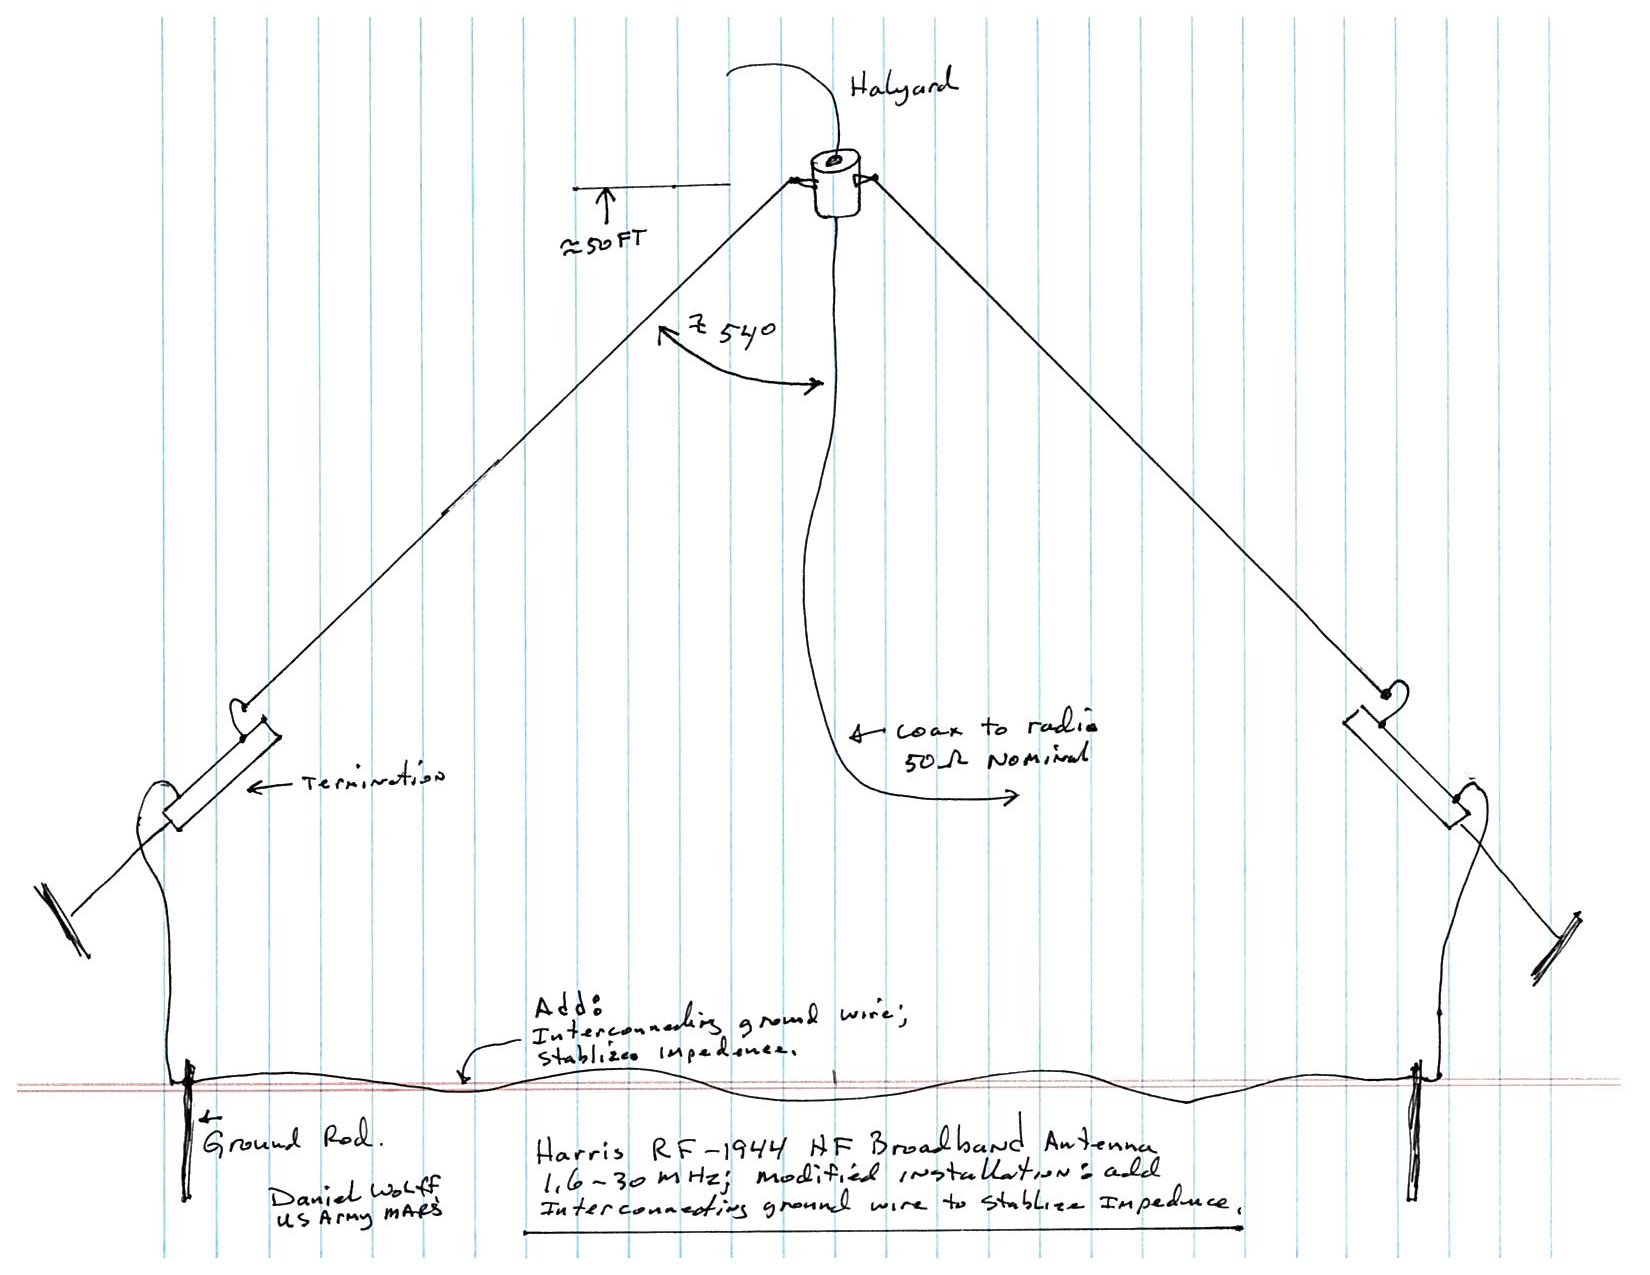 Halyard
≈50FT
∠ 54°
← coax to radio
50Ω Nominal
← Termination
Add:
Interconnecting ground wire;
Stablizes impedence.
Ground Rod.
Harris RF-1944 HF Broadband Antenna
1.6-30 MHz; modified installation: add
Interconnecting ground wire to stablize Impeduce.
Daniel Wolff
US Army MARS